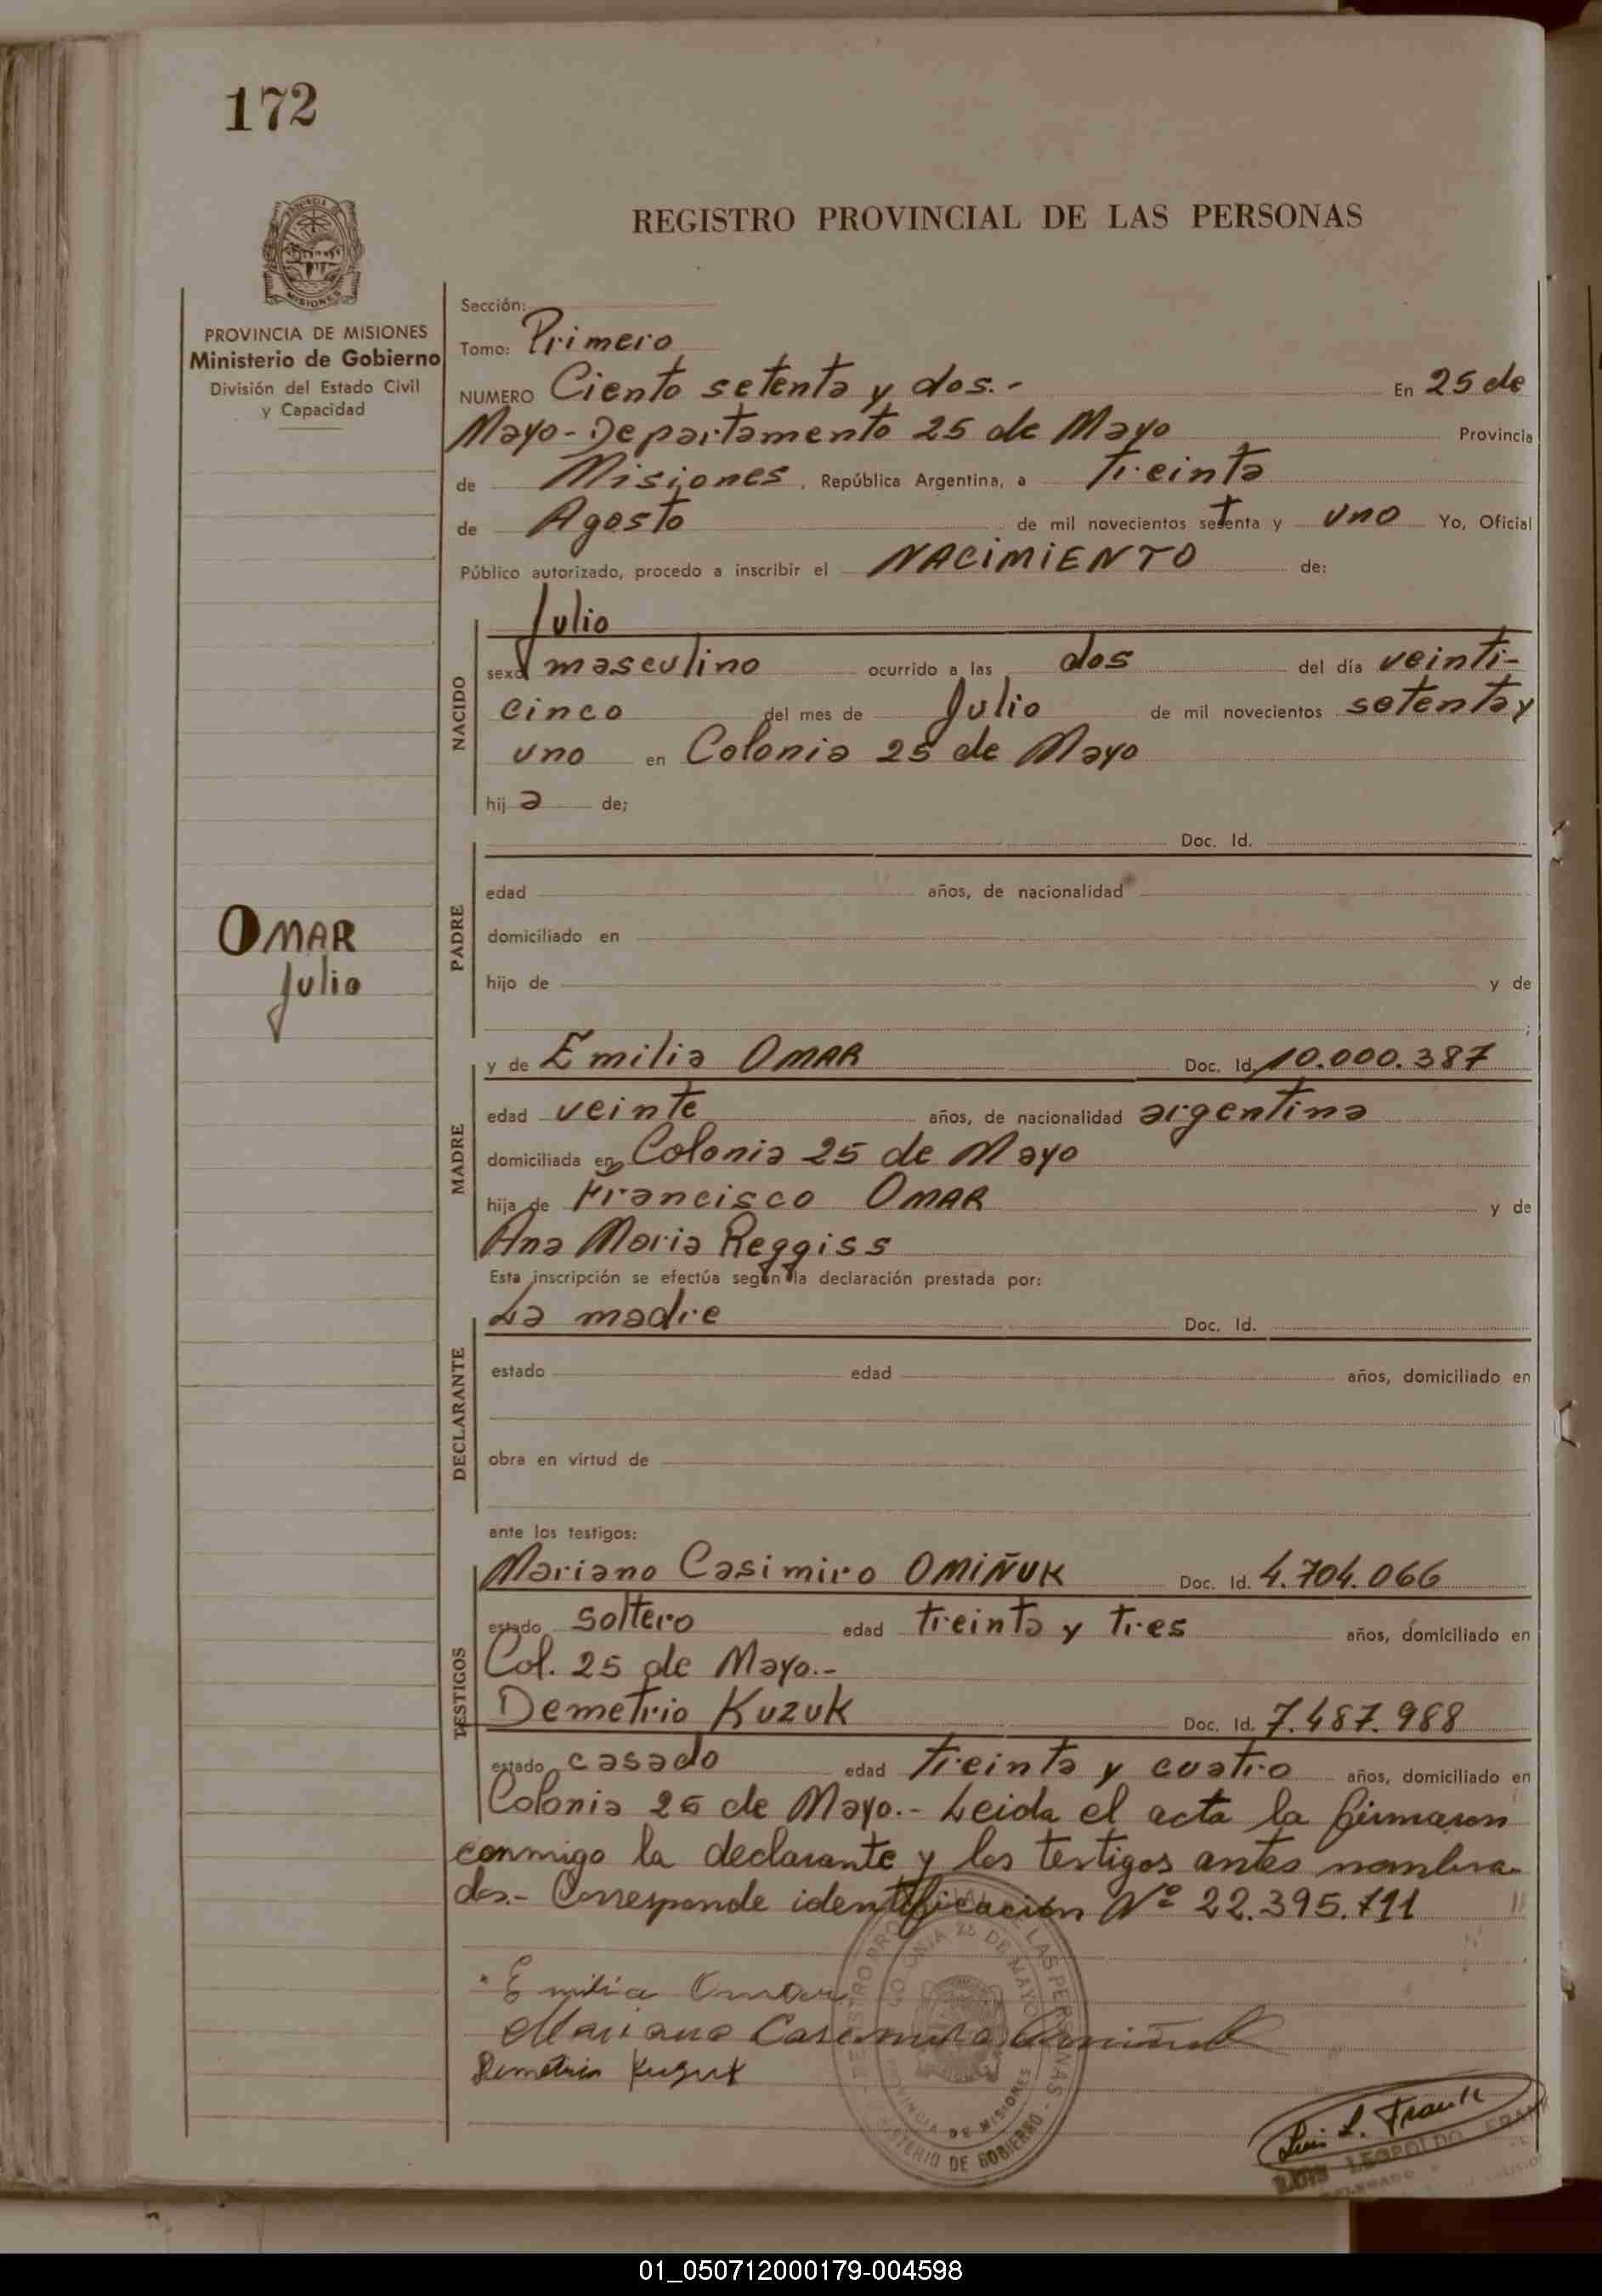 172
REGISTRO PROVINCIAL DE LAS PERSONAS
PROVINCIA DE MISIONES
Ministerio de Gobierno
División del Estado Civil
y Capacidad
Sección:
Tomo: Primero
NUMERO Ciento setenta y dos.- En 25 de
Mayo - Departamento 25 de Mayo Provincia
de Misiones, República Argentina, a Treinta
de Agosto de mil novecientos setenta y uno Yo, Oficial
Público autorizado, procedo a inscribir el NACIMIENTO de:
NACIDO
Julio
sexo masculino ocurrido a las dos del día veinti-
cinco del mes de Julio de mil novecientos setenta y
uno en Colonia 25 de Mayo
hija de;
PADRE
Doc. Id.
edad años, de nacionalidad
domiciliado en
hijo de y de
;
OMAR
Julio
MADRE
y de Emilia OMAR Doc. Id. 10.000.387
edad veinte años, de nacionalidad argentina
domiciliada en Colonia 25 de Mayo
hija de Francisco OMAR y de
Ana Maria Reggiss
Esta inscripción se efectúa según la declaración prestada por:
DECLARANTE
La madre Doc. Id.
estado edad años, domiciliado en
obra en virtud de
ante los testigos:
TESTIGOS
Mariano Casimiro OMIÑUK Doc. Id. 4.704.066
estado soltero edad treinta y tres años, domiciliado en
Col. 25 de Mayo.-
Demetrio KUZUK Doc. Id. 7.487.988
estado casado edad treinta y cuatro años, domiciliado en
Colonia 25 de Mayo.- Leida el acta la firmaron
conmigo la declarante y los testigos antes nombra-
dos.- Corresponde identificación Nº 22.395.711
Emilia Omar
Mariano Casimiro Omiñuk
Demetrio Kuzuk
COLONIA 25 DE MAYO
PROVINCIA DE MISIONES
MINISTERIO DE GOBIERNO
Luis L. Frank
LUIS LEOPOLDO FRANK
01_050712000179-004598